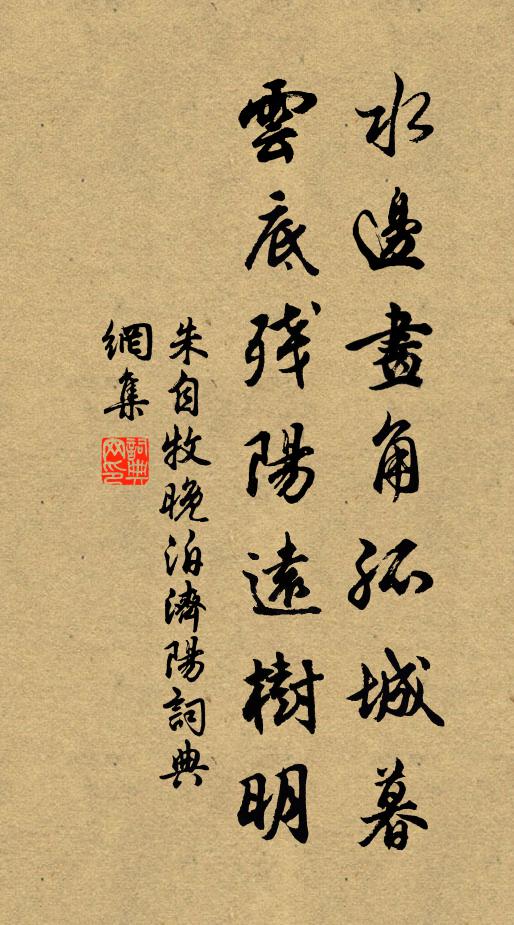 水邊畫角孤城暮
雲底残陽遠樹明
朱自牧晚泊濟陽詞典
網集
詞典
网印